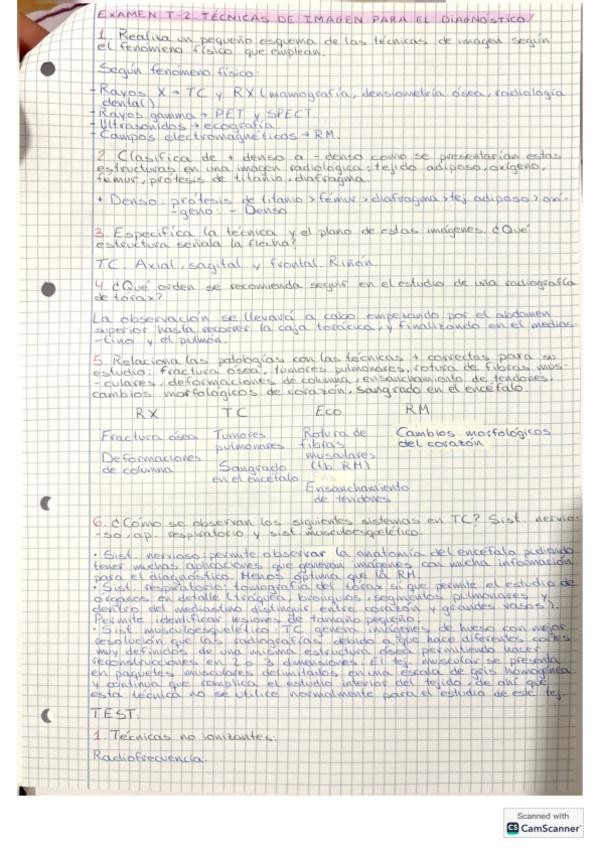 EXAMEN T-2. TÉCNICAS DE IMAGEN PARA EL DIAGNÓSTICO
1. Realiza un pequeño esquema de las técnicas de imagen según
el fenómeno físico que emplean.
Según fenómeno físico:
- Rayos X → TC y RX (mamografía, densiometría ósea, radiología
dental).
- Rayos gamma → PET y SPECT.
- Ultrasonidos → ecografía
- Campos electromagnéticos → RM.
2. Clasifica de + denso a - denso como se presentarían estas
estructuras en una imagen radiológica: tejido adiposo, oxígeno,
fémur, prótesis de titanio, diafragma.
+ Denso: prótesis de titanio > fémur > diafragma > tej. adiposo > oxí-
-geno: - Denso
3. Especifica la técnica y el plano de estas imágenes. ¿Qué
estructura señala la flecha?
TC. Axial, sagital y frontal. Riñón.
4. ¿Qué orden se recomienda seguir en el estudio de una radiografía
de tórax?
La observación se llevará a cabo empezando por el abdomen
superior hasta recorrer la caja torácica, y finalizando en el medias-
-tino y el pulmón.
5. Relaciona las patologías con las técnicas + correctas para su
estudio: fractura ósea, tumores pulmonares, rotura de fibras mus-
-culares, deformaciones de columna, ensanchamiento de tendones,
cambios morfológicos de corazón, sangrado en el encéfalo.
RX TC Eco RM
Fractura ósea Tumores Rotura de Cambios morfológicos
pulmonares fibras del corazón
Deformaciones musculares
de columna Sangrado (tb. RM)
en el encéfalo
Ensanchamiento
de tendones
6. ¿Cómo se observan los siguientes sistemas en TC? Sist. nervio-
-so, ap. respiratorio y sist. musculoesquelético.
• Sist. nervioso: permite observar la anatomía del encéfalo pudiendo
tener muchas aplicaciones que generan imágenes con mucha información
para el diagnóstico. Menos óptima que la RM.
• Sist. respiratorio: tomografía del tórax sí que permite el estudio de
órganos en detalle (tráquea, bronquios, segmentos pulmonares y
dentro del mediastino distinguir entre corazón y grandes vasos).
Permite identificar lesiones de tamaño pequeño.
• Sist. musculoesquelético: TC genera imágenes de hueso con mejor
resolución que las radiografías debido a que hace diferentes cortes
muy definidos de una misma estructura ósea permitiendo hacer
reconstrucciones en 2 o 3 dimensiones. El tej. muscular se presenta
en paquetes musculares delimitados en una escala de gris homogénea
y continua que complica el estudio interior del tejido, de ahí que
esta técnica no se utilice normalmente para el estudio de este tej.
TEST:
1. Técnicas no ionizantes:
Radiofrecuencia.
Scanned with
CS CamScanner